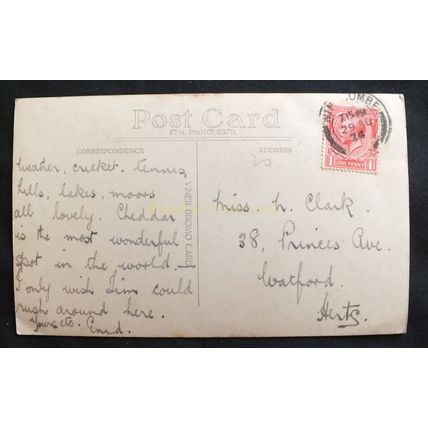 Post Card
REAL PHOTOGRAPH.
CORRESPONDENCE
ADDRESS
VINER BROMO CARD
Weather, cricket, tennis,
hills, lakes, moors
all lovely. Cheddar
is the most wonderful
spot in the world.
I only wish Jim could
rush around here.
Yours etc. Enid.
Miss N. Clark.
38, Princes Ave.
Watford.
Herts
COMBE
7.15 PM
29 AU
24
1 ONE PENNY 1